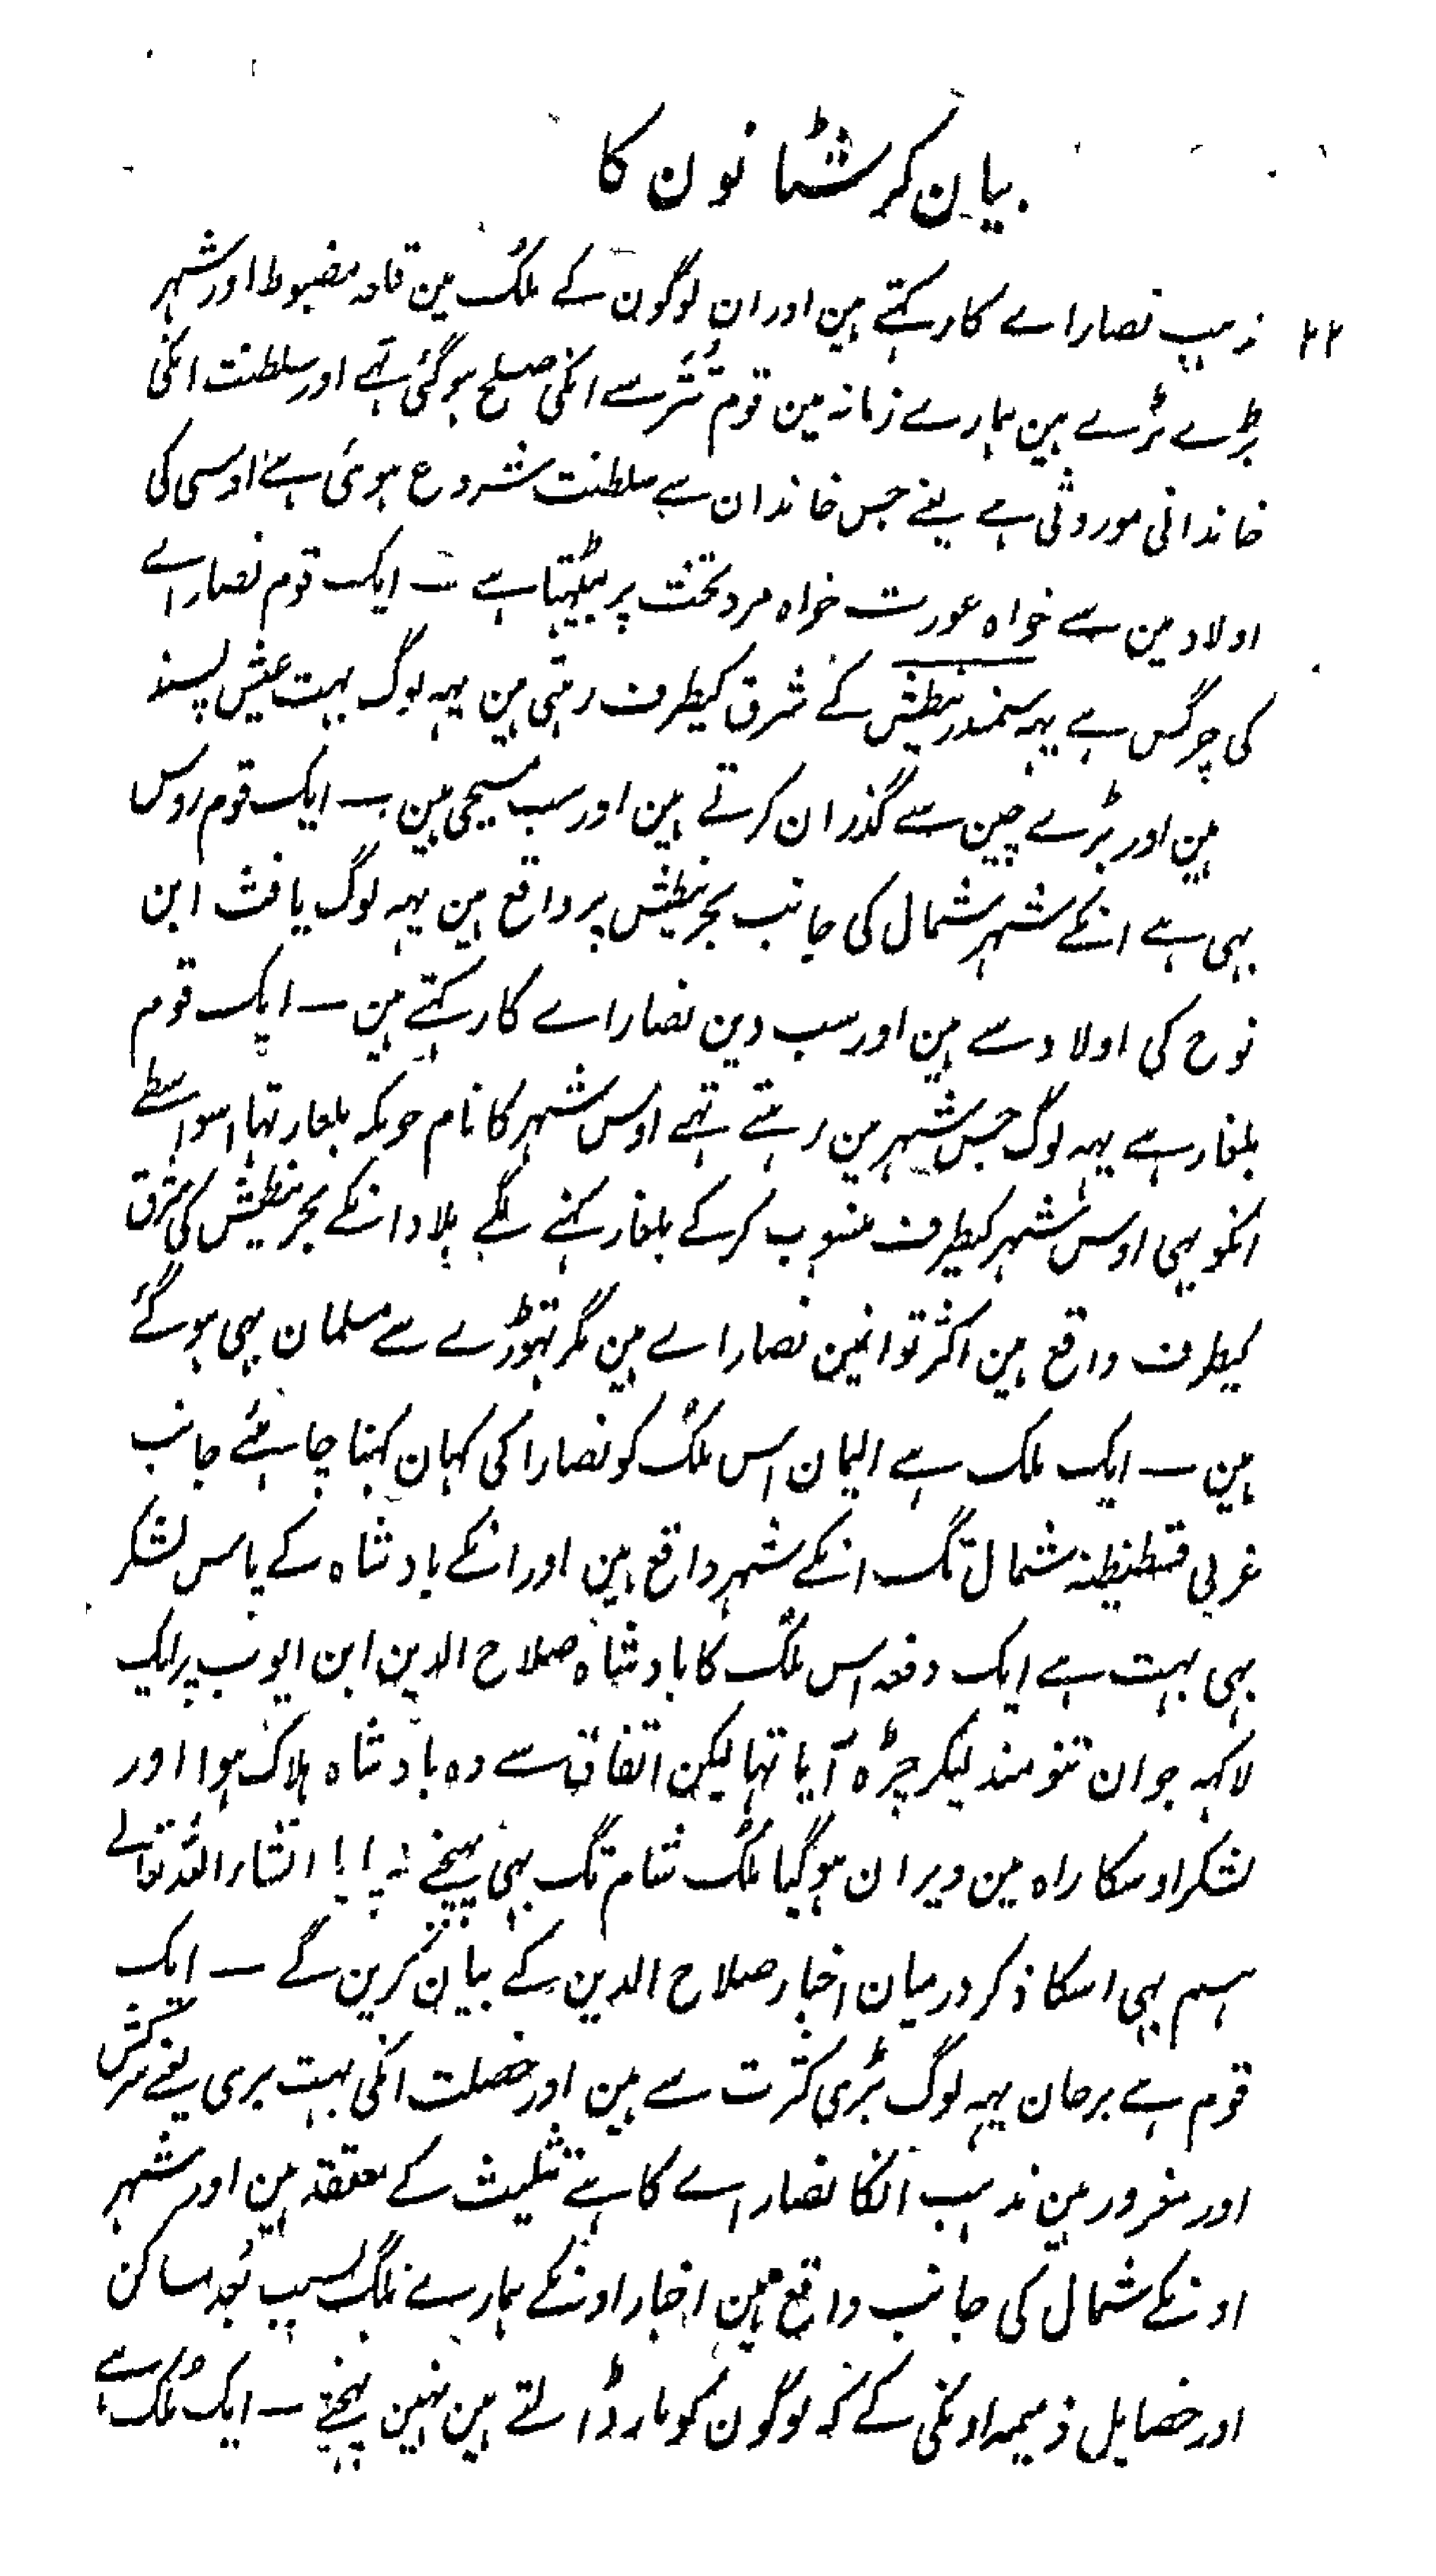 بیان کرشٹانون کا
۲۲
مذہب نصاراے کا رکہتے ہین اور ان لوگون کے ملک مین قلعہ مضبوط اور شہر
بڑے بڑے ہین ہمارے زمانہ مین قوم تتر سے انکی صلح ہوگئی ہے اور سلطنت انکی
خاندانی موروثی ہے یعنے جس خاندان سے سلطنت شروع ہوئی ہے اوسی کی
اولاد مین سے خواہ عورت خواہ مرد تخت پر بیٹہتا ہے ـ ایک قوم نصاراے
کی چرگس ہے یہہ سمندر نیطش کے شرق کیطرف رہتی ہین یہہ لوگ بہت عیش پسند
ہین اور بڑے چین سے گذران کرتے ہین اور سب مسیحی ہین ـ ایک قوم روس
بہی ہے انکے شہر شمال کی جانب بحر نیطش پر واقع ہین یہہ لوگ یافث ابن
نوح کی اولاد سے ہین اور سب دین نصاراے کا رکہتے ہین ـ ایک قوم
بلغار ہے یہہ لوگ جس شہر مین رہتے تہے اوس شہر کا نام جوبکہ بلغار تہا اسواسطے
انکو بہی اوس شہر کیطرف منسوب کرکے بلغار کہنے لگے بلاد انکے بحر نیطش کی شرق
کیطرف واقع ہین اکثر تو انمین نصاراے ہین مگر تہوڑے سے مسلمان بہی ہوگئے
ہین ـ ایک ملک ہے المان اس ملک کو نصارا کی کہان کہنا چاہئے جانب
غربی قسطنطنہ شمال تک انکے شہر واقع ہین اور انکے بادشاہ کے پاس لشکر
بہی بہت ہے ایک دفعہ اس ملک کا بادشاہ صلاح الدین ابن ایوب پر ایک
لاکہہ جوان تنومند لیکر چڑہ آیا تہا لیکن اتفاق سے وہ بادشاہ ہلاک ہوا اور
لشکر اوسکا راہ مین ویران ہوگیا ملک شام تک بہی پہنچنے نہ پایا انشاء اللہ تعالے
ہم بہی اسکا ذکر درمیان اخبار صلاح الدین کے بیان کرین گے ـ ایک
قوم ہے برجان یہہ لوگ بڑی کثرت سے ہین اور خصلت انکی بہت بری یعنے سرکش
اور مغرور ہین مذہب انکا نصاراے کا ہے تثلیث کے معتقد ہین اور شہر
اونکے شمال کی جانب واقع ہین اخبار اونکے ہمارے ملک بسبب بُعد مساکن
اور خصایل ذمیمہ اونکی کے کہ لوگون کو مار ڈالتے ہین نہین پہنچے ـ ایک ملک ہے